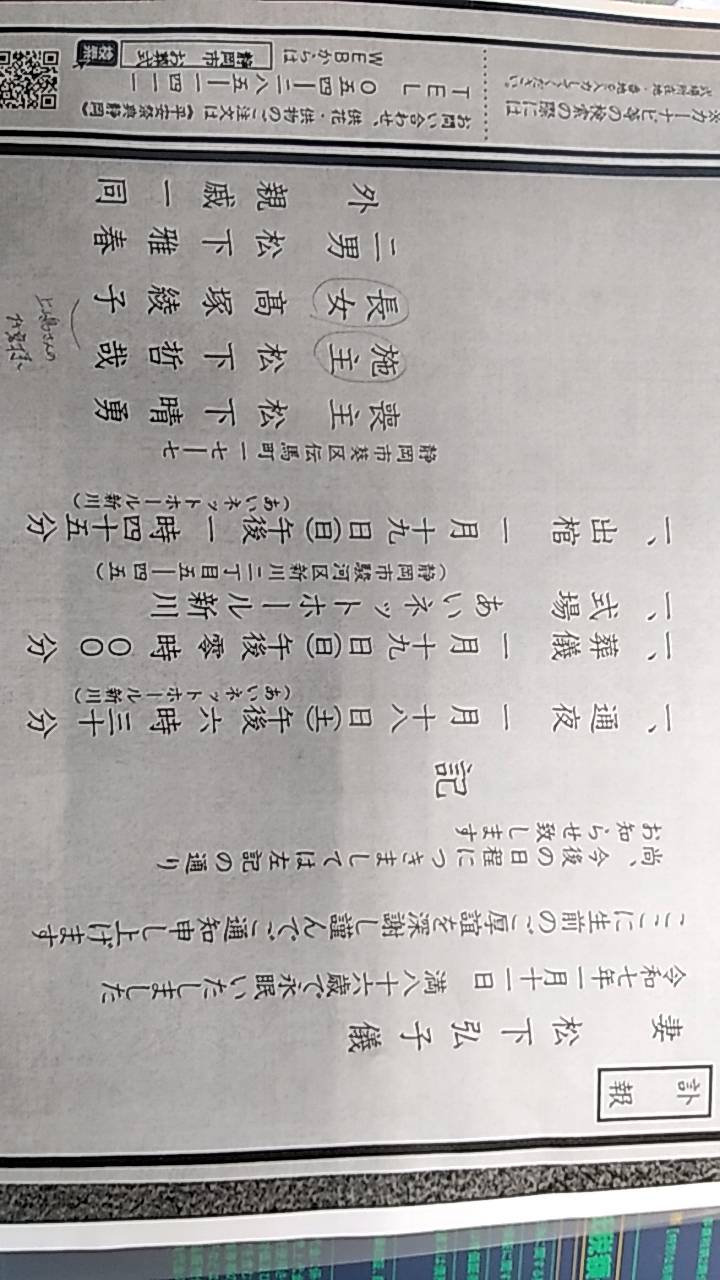 訃報
妻 松下弘子儀
令和七年一月十一日 満八十六歳で永眠いたしました
ここに生前のご厚誼を深謝し謹んでご通知申し上げます
尚、今後の日程につきましては左記の通り
お知らせ致します
記
一、通夜 一月十八日(土)午後六時三十分
(あいネットホール新川)
一、葬儀 一月十九日(日)午後零時〇〇分
一、式場 あいネットホール新川
(静岡市駿河区新川二丁目五ー四五)
一、出棺 一月十九日(日)午後一時四十五分
(あいネットホール新川)
静岡市葵区伝馬町一七ー七
喪主 松下晴勇
施主 松下哲哉
長女 高塚綾子
二男 松下雅春
外 親戚一同
※カーナビ等の検索の際には
式場所在地・番地を入力してください。
お問い合わせ、供花・供物のご注文は《平安祭典静岡》
TEL 〇五四ー二八五ー一四一一
WEBからは 静岡市 お葬式 検索